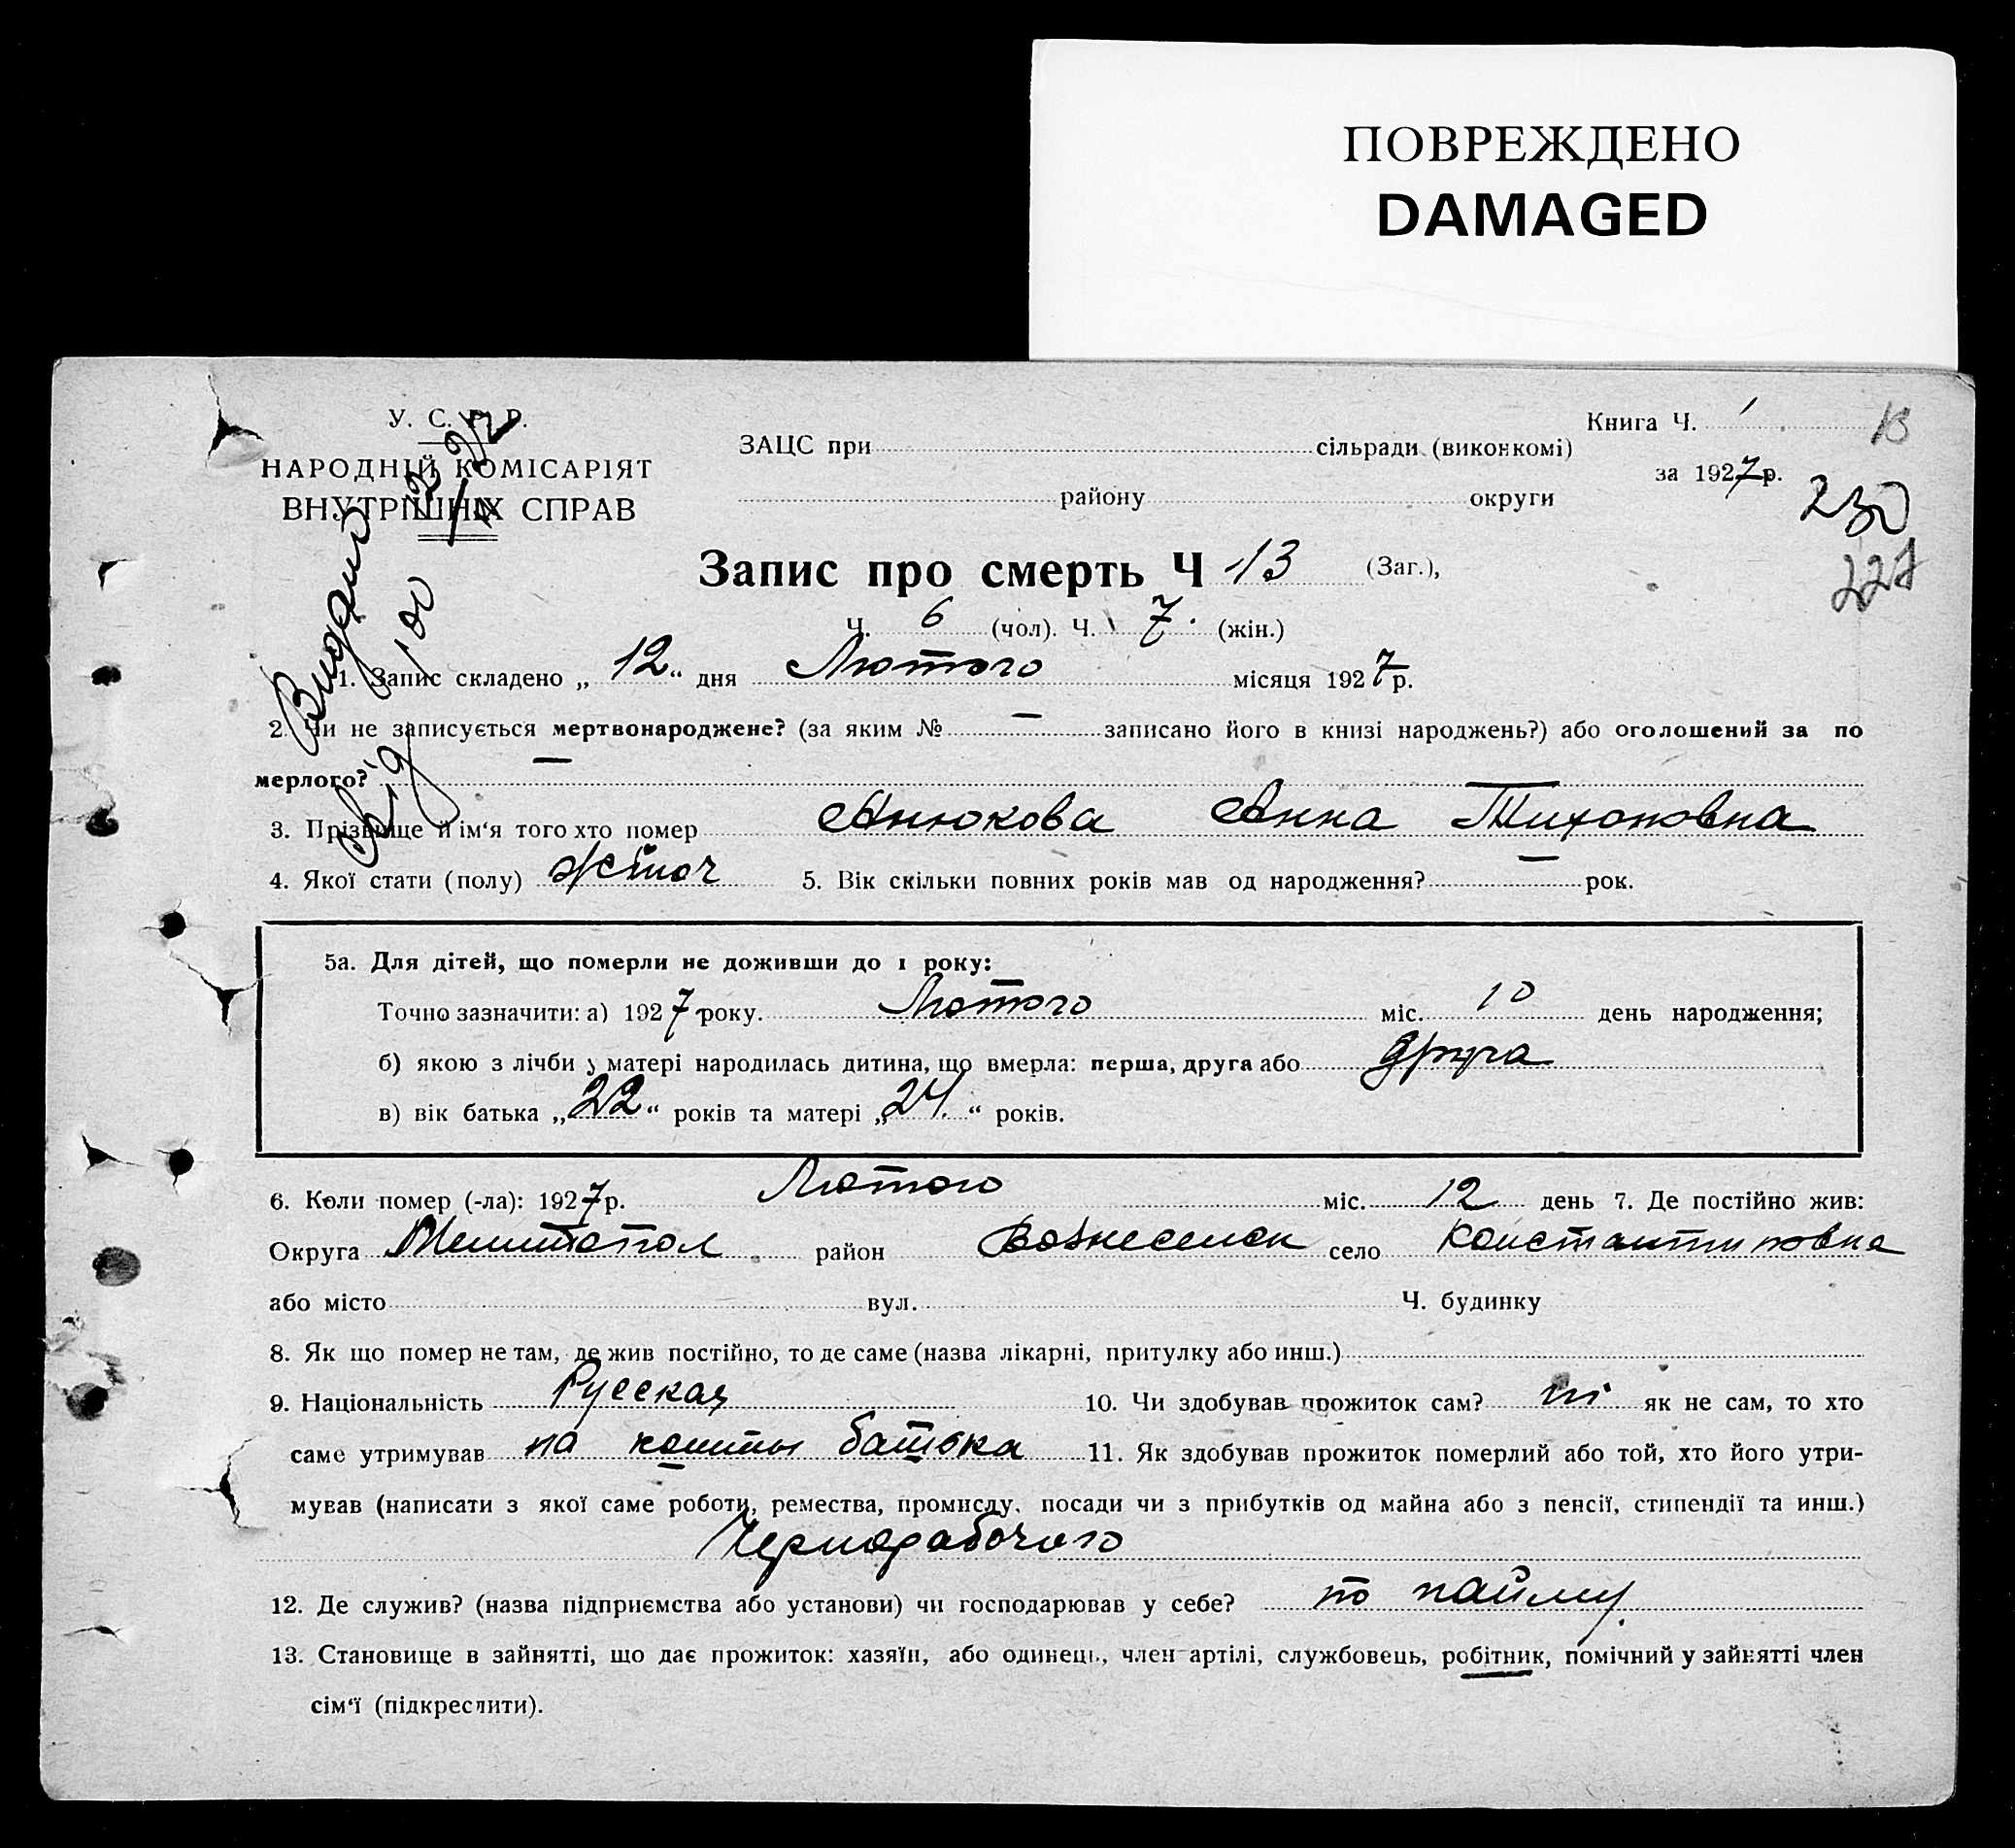 ПОВРЕЖДЕНО
DAMAGED
У. С. Р. Р.
НАРОДНІЙ КОМІСАРІЯТ
ВНУТРІШНІХ СПРАВ
ЗАЦС при сільради (виконкомі)
району округи
Книга Ч. 1
за 1927 р.
13
230
227
Видано
Запис про смерть Ч 13 (Заг.),
Ч. 6 (чол). Ч. 7. (жін.)
1. Запис складено „ 12 “ дня Лютого місяця 1927 р.
2. Чи не записується мертвонароджене? (за яким № — записано його в книзі народжень?) або оголошений за по
мерлого? —
3. Прізвище й ім‘я того хто помер Анюкова Анна Тихоновна
4. Якої стати (полу) жіноч 5. Вік скільки повних років мав од народження? — рок.
5а. Для дітей, що померли не доживши до 1 року:
Точно зазначити: а) 1927 року. Лютого міс. 10 день народження;
б) якою з лічби у матері народилась дитина, що вмерла: перша, друга або друга
в) вік батька „22“ років та матері „24“ років.
6. Коли помер (-ла): 1927 р. Лютого міс. 12 день 7. Де постійно жив:
Округа Мелитопол район Вознесенск село Константиновка
або місто вул. Ч. будинку
8. Як що помер не там, де жив постійно, то де саме (назва лікарні, притулку або инш.)
9. Національність Русская 10. Чи здобував прожиток сам? ні як не сам, то хто
саме утримував на кошты батька 11. Як здобував прожиток померлий або той, хто його утри-
мував (написати з якої саме роботи, ремества, промислу, посади чи з прибутків од майна або з пенсії, стипендії та инш.)
Чернорабочого
12. Де служив? (назва підприємства або установи) чи господарював у себе? по найму.
13. Становище в зайнятті, що дає прожиток: хазяїн, або одинець, член артілі, службовець, робітник, помічний у зайнятті член
сім‘ї (підкреслити).